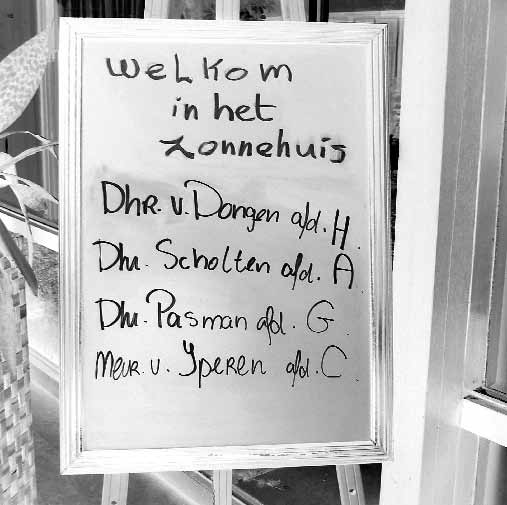 Welkom
in het
Zonnehuis
Dhr. v. Dongen afd. H.
Dhr. Scholten afd. A.
Dhr. Pasman afd. G.
Mevr. v. Yperen afd. C.